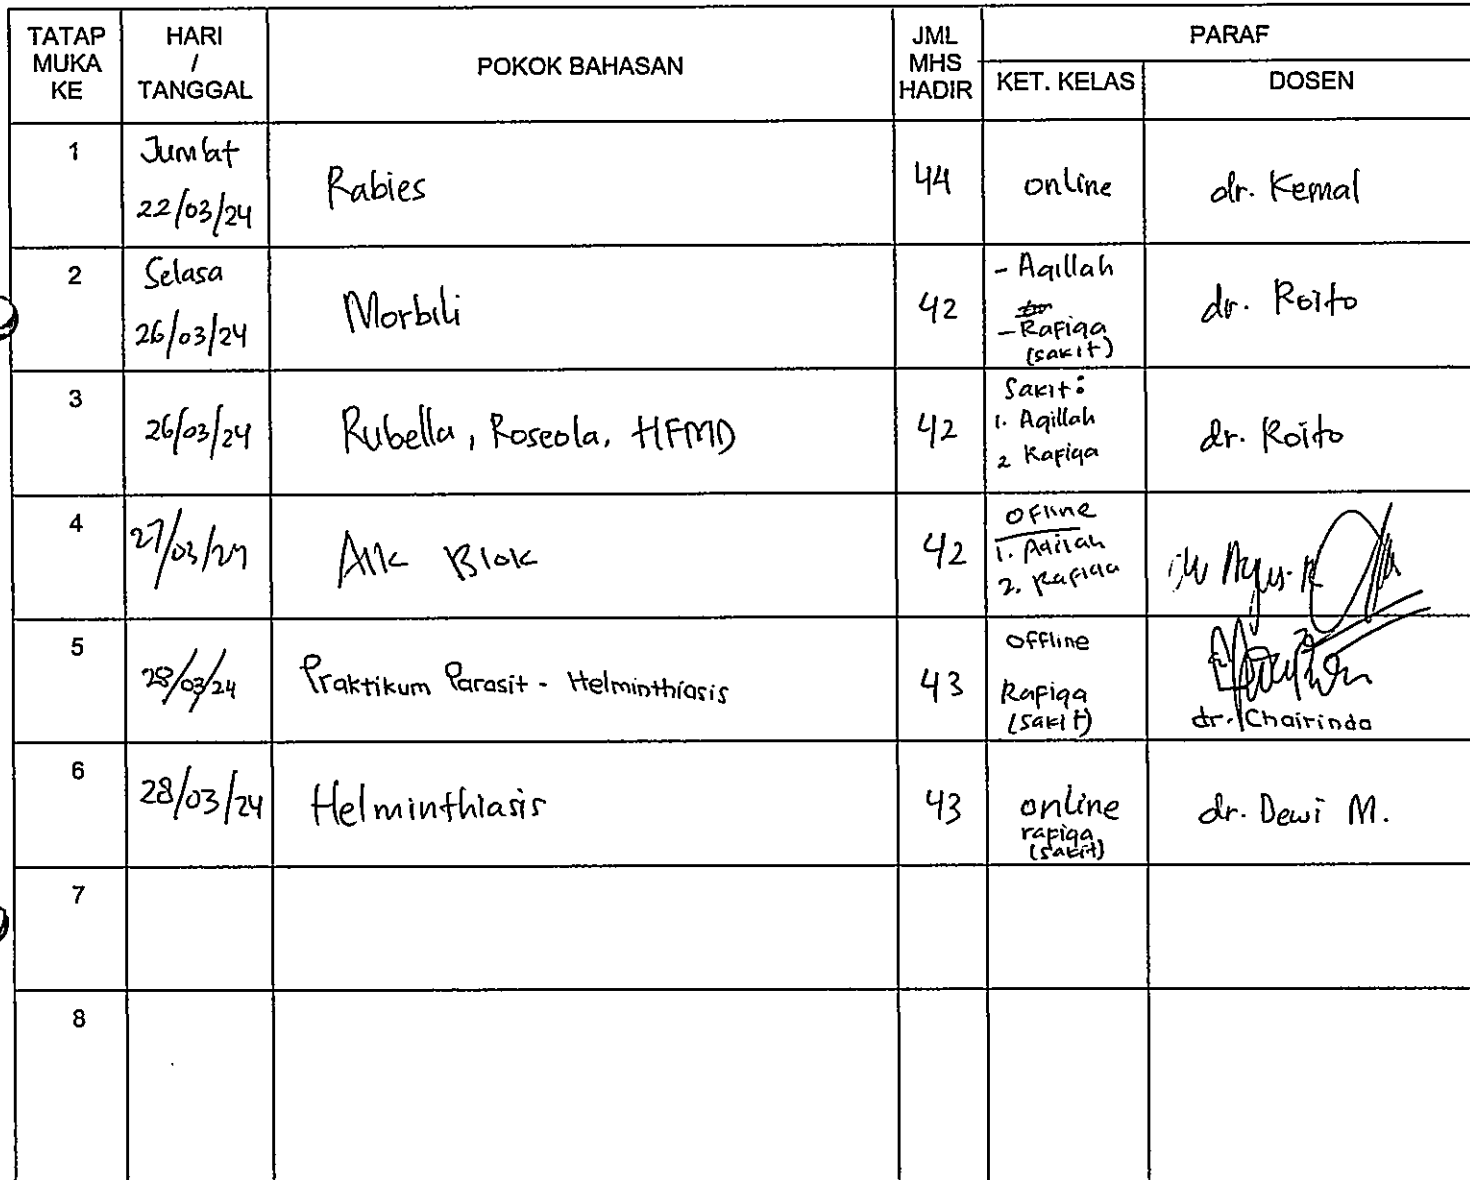 TATAP MUKA KE
HARI / TANGGAL
POKOK BAHASAN
JML MHS HADIR
PARAF
KET. KELAS
DOSEN
1
Jumbat
22/03/24
Rabies
44
online
dr. Kemal
2
Selasa
26/03/24
Morbili
42
- Aqillah
- Rafiqa
(sakit)
dr. Roito
3
26/03/24
Rubella, Roseola, HFMD
42
Sakit:
1. Aqillah
2 Rafiqa
dr. Roito
4
27/03/24
Blok
42
Ofline
1. Aqilah
2. Rafiqa
5
28/03/24
Praktikum Parasit - Helminthiasis
43
offline
Rafiqa
(sakit)
dr. Chairinda
6
28/03/24
Helminthiasis
43
online
rafiqa
(sakit)
dr. Dewi M.
7
8